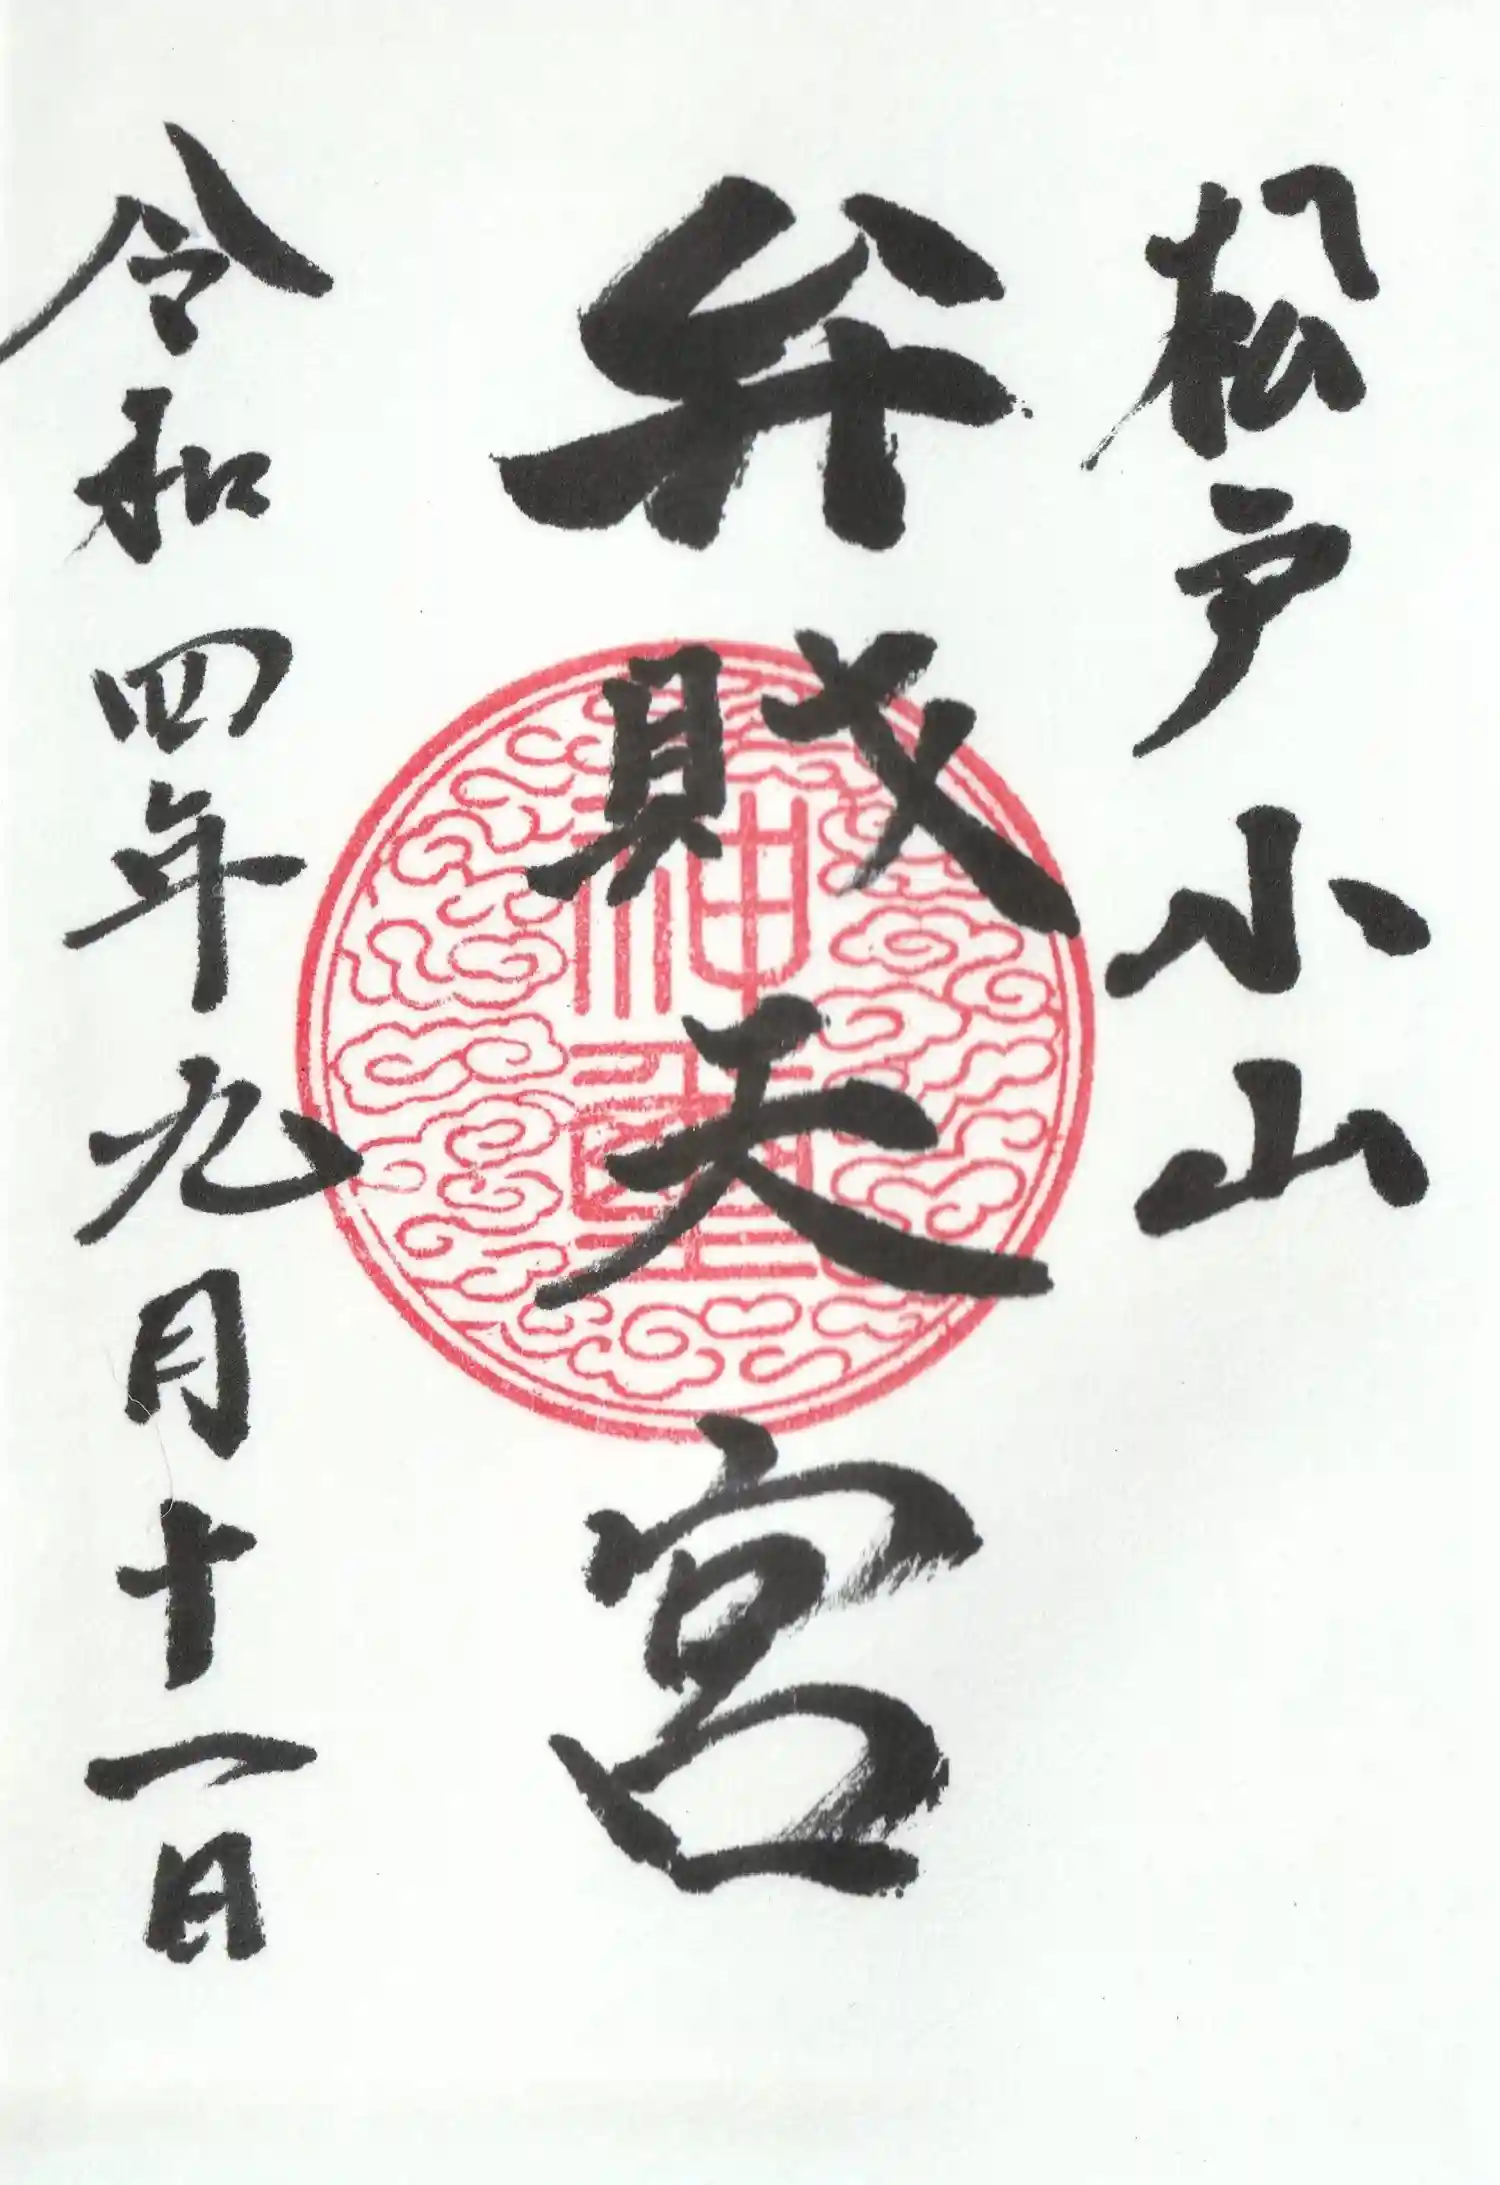 松戸小山
弁財天宮
神璽
令和四年九月十一日